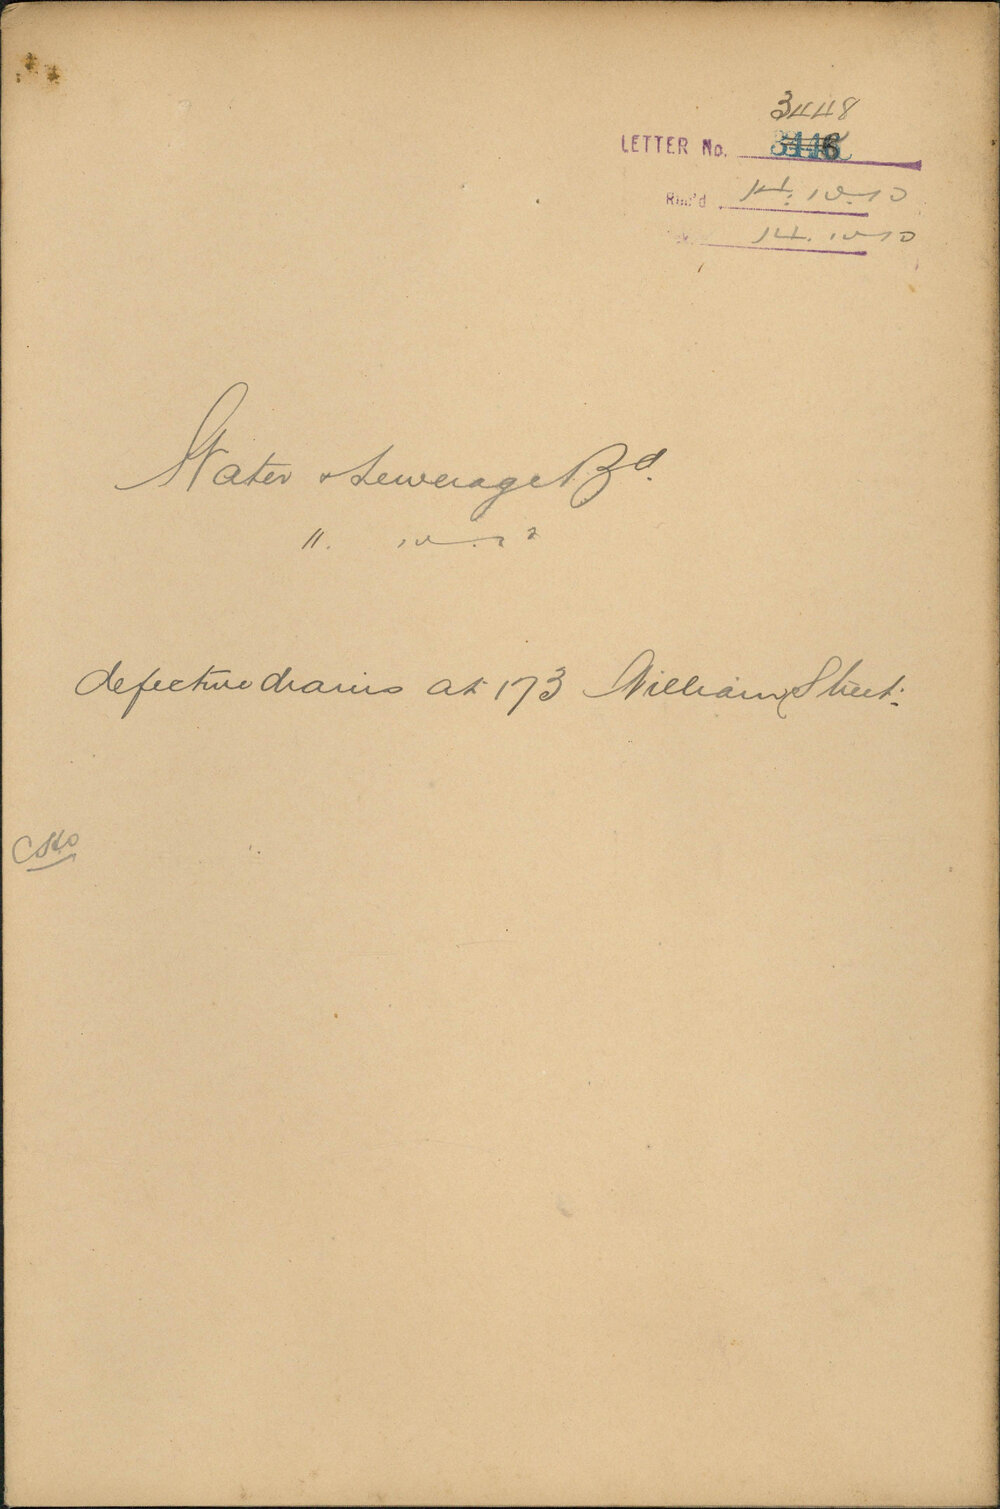 3448
LETTER No. 3446
Rec'd 14.10.10
14.10.10
Water & Sewerage Bd.
11.
defective drains at 173 William Street.